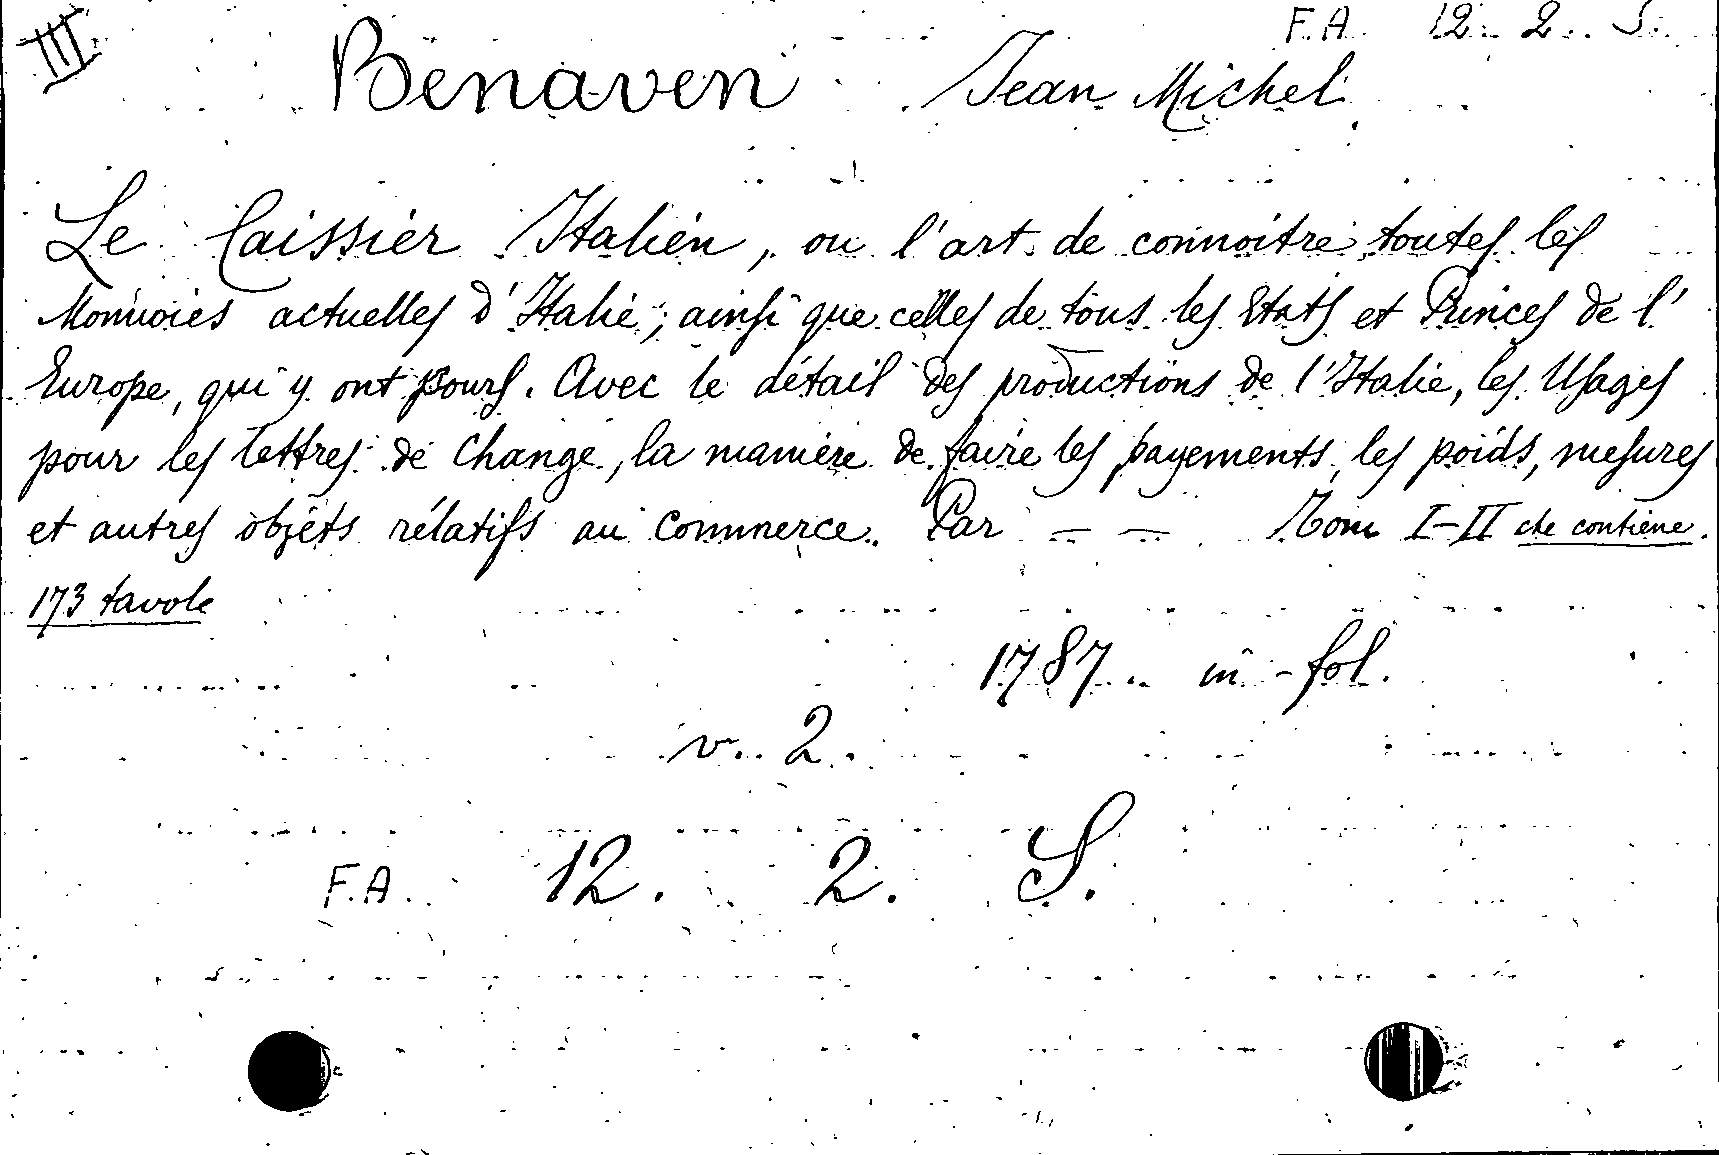 III F.A. 12. 2. S.
Benaven Jean Michel
Le Caissier Italien, ou l'art de connoitre toutes les
Monnoies actuelles d'Italie, ainsi que celles de tous les Etats et Princes de l'
Europe, qui y ont cours. Avec le détail des productions de l'Italie, les Usages
pour les lettres de Change, la manière de faire les payements, les poids, mesures
et autres objets rélatifs au Commerce. Par — — Tom I-II che contiene
173 tavole
1787. in-fol.
v. 2.
F.A. 12. 2. S.